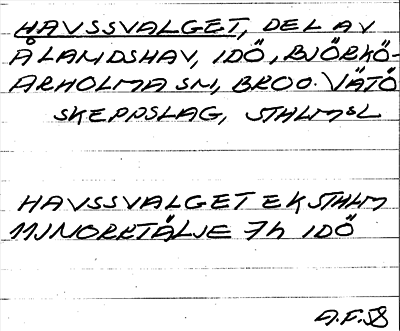 HAVSSVALGET, DEL AV
ÅLANDSHAV, IDÖ, BJÖRKÖ-
ARHOLMA SN, BRO O. VÄTÖ
SKEPPSLAG, STHLMSL
HAVSSVALGET EK STHLM
11J NORRTÄLJE 7h IDÖ
A.F. 58